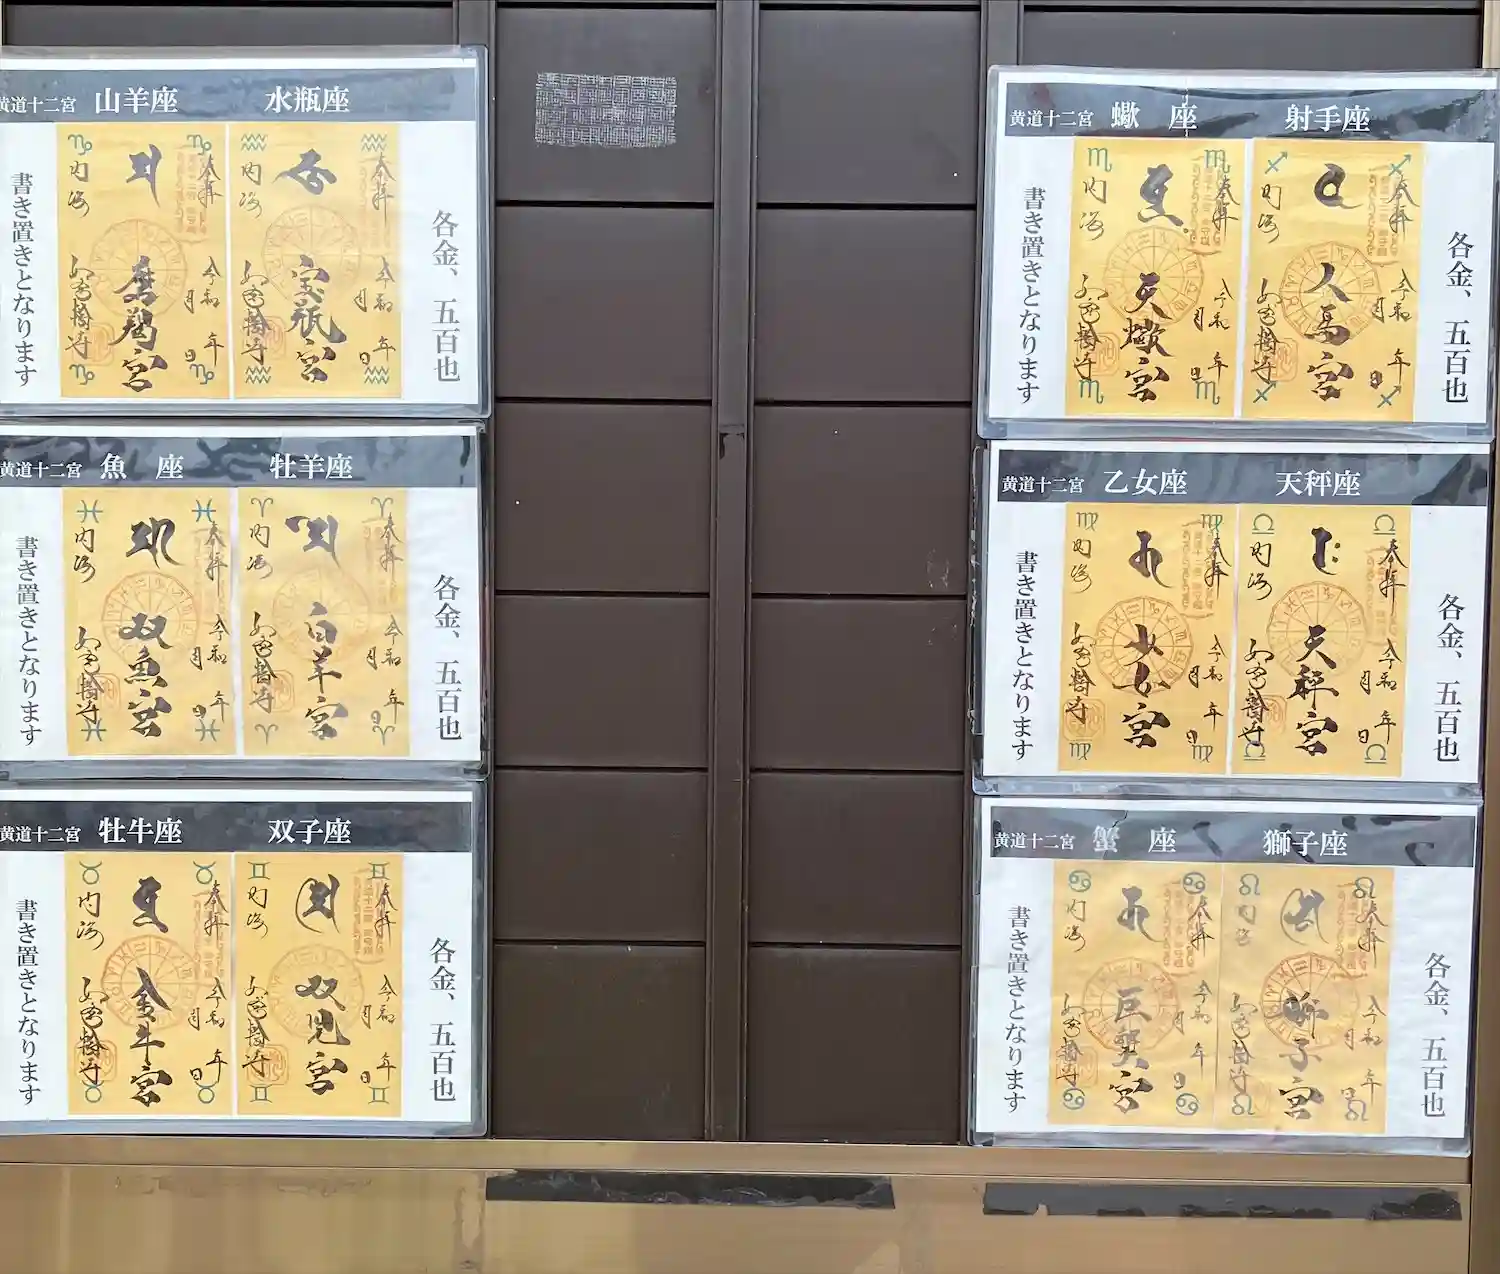 黄道十二宮 山羊座 水瓶座
奉拝
令和 年 月 日
宝瓶宮
内海
奉拝
令和 年 月 日
磨羯宮
内海
各金、五百也
書き置きとなります
黄道十二宮 魚 座 牡羊座
奉拝
令和 年 月 日
白羊宮
内海
奉拝
令和 年 月 日
双魚宮
内海
各金、五百也
書き置きとなります
黄道十二宮 牡牛座 双子座
奉拝
令和 年 月 日
双児宮
内海
奉拝
令和 年 月 日
金牛宮
内海
各金、五百也
書き置きとなります
黄道十二宮 蠍 座 射手座
奉拝
令和 年 月 日
人馬宮
内海
奉拝
令和 年 月 日
天蠍宮
内海
各金、五百也
書き置きとなります
黄道十二宮 乙女座 天秤座
奉拝
令和 年 月 日
天秤宮
内海
奉拝
令和 年 月 日
少女宮
内海
各金、五百也
書き置きとなります
黄道十二宮 蟹 座 獅子座
奉拝
令和 年 月 日
獅子宮
内海
奉拝
令和 年 月 日
巨蟹宮
内海
各金、五百也
書き置きとなります